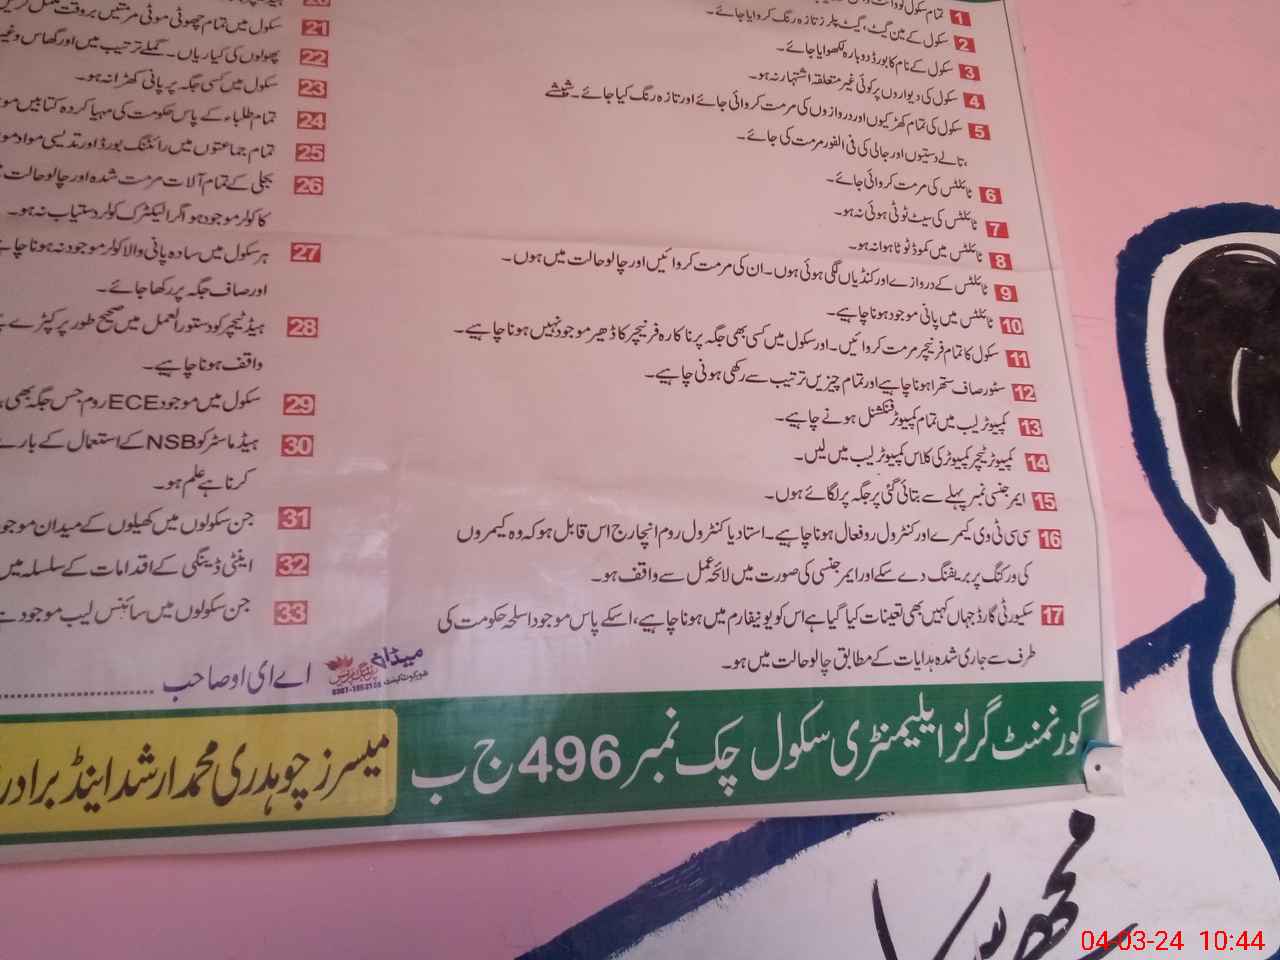 1 تمام سکول کو
سکول کے مین گیٹ، گیٹ پلرز تازہ رنگ کروایا جائے۔
2 سکول کے نام کا بورڈ دوبارہ لکھوایا جائے۔
3 سکول کی دیواروں پر کوئی غیر متعلقہ اشتہار نہ ہو۔
4 سکول کی تمام کھڑکیوں اور دروازوں کی مرمت کروائی جائے اور تازہ رنگ کیا جائے۔ شیشے
5 ،تالے دستیوں اور جالی کی فی الفور مرمت کی جائے۔
6 ٹائلٹس کی مرمت کروائی جائے۔
7 ٹائلٹس کی سیٹ ٹوٹی ہوئی نہ ہو۔
8 ٹائلٹس میں کموڈ ٹوٹا ہوا نہ ہو۔
9 ٹائلٹس کے دروازے اور کنڈیاں لگی ہوئی ہوں۔ ان کی مرمت کروائیں اور چالو حالت میں ہوں۔
10 ٹائلٹس میں پانی موجود ہونا چاہیے۔
11 سکول کا تمام فرنیچر مرمت کروائیں۔ اور سکول میں کسی بھی جگہ پر ناکارہ فرنیچر کا ڈھیر موجود نہیں ہونا چاہیے۔
12 سٹور صاف ستھرا ہونا چاہیے اور تمام چیزیں ترتیب سے رکھی ہونی چاہیے۔
13 کمپیوٹر لیب میں تمام کمپیوٹر فنکشنل ہونے چاہیے۔
14 کمپیوٹر ٹیچر کمپیوٹر کی کلاس کمپیوٹر لیب میں لیں۔
15 ایمرجنسی نمبر پہلے سے بتائی گئی پر جگہ پر لگائے ہوں۔
16 سی سی ٹی وی کیمرے اور کنٹرول رو فعال ہونا چاہیے۔ استاد یا کنٹرول روم انچارج اس قابل ہو کہ وہ کیمروں
کی ورکنگ پر بریفنگ دے سکے اور ایمرجنسی کی صورت میں لائحہ عمل سے واقف ہو۔
17 سکیورٹی گارڈ جہاں کہیں بھی تعینات کیا گیا ہے اس کو یونیفارم میں ہونا چاہیے، اسکے پاس موجود اسلحہ حکومت کی
طرف سے جاری شدہ ہدایات کے مطابق چالو حالت میں ہو۔
20
21 سکول میں تمام چھوٹی موٹی مرمتیں بروقت مکمل
22 پھولوں کی کیاریاں۔ گملے ترتیب میں اور گھاس وغیر
23 سکول میں کسی جگہ پر پانی کھڑا نہ ہو۔
24 تمام طلباء کے پاس حکومت کی مہیا کردہ کتابیں مو
25 تمام جماعتوں میں رائٹنگ بورڈ اور تدریسی مواد مو
26 بجلی کے تمام آلات مرمت شدہ اور چالو حالت
کا کولر موجود ہو اگر الیکٹرک کولر دستیاب نہ ہو۔
27 ہر سکول میں سادہ پانی والا کولر موجود نہ ہونا چاہ
اور صاف جگہ پر رکھا جائے۔
28 ہیڈ ٹیچر کو دستور العمل میں صحیح طور پر کپڑے
واقف ہونا چاہیے۔
29 سکول میں موجود ECE روم جس جگہ بھی،
30 ہیڈ ماسٹر کو NSB کے استعمال کے بارے
کرنا ہے علم ہو۔
31 جن سکولوں میں کھیلوں کے میدان موجود
32 اینٹی ڈینگی کے اقدامات کے سلسلہ میں
33 جن سکولوں میں سائنس لیب موجود
میڈان
اے ای او صاحب
گورنمنٹ گرلز ایلیمنٹری سکول چک نمبر 496 ج ب
میسرز چوہدری محمد ارشد اینڈ برادر
مجھ سے
04-03-24 10:44